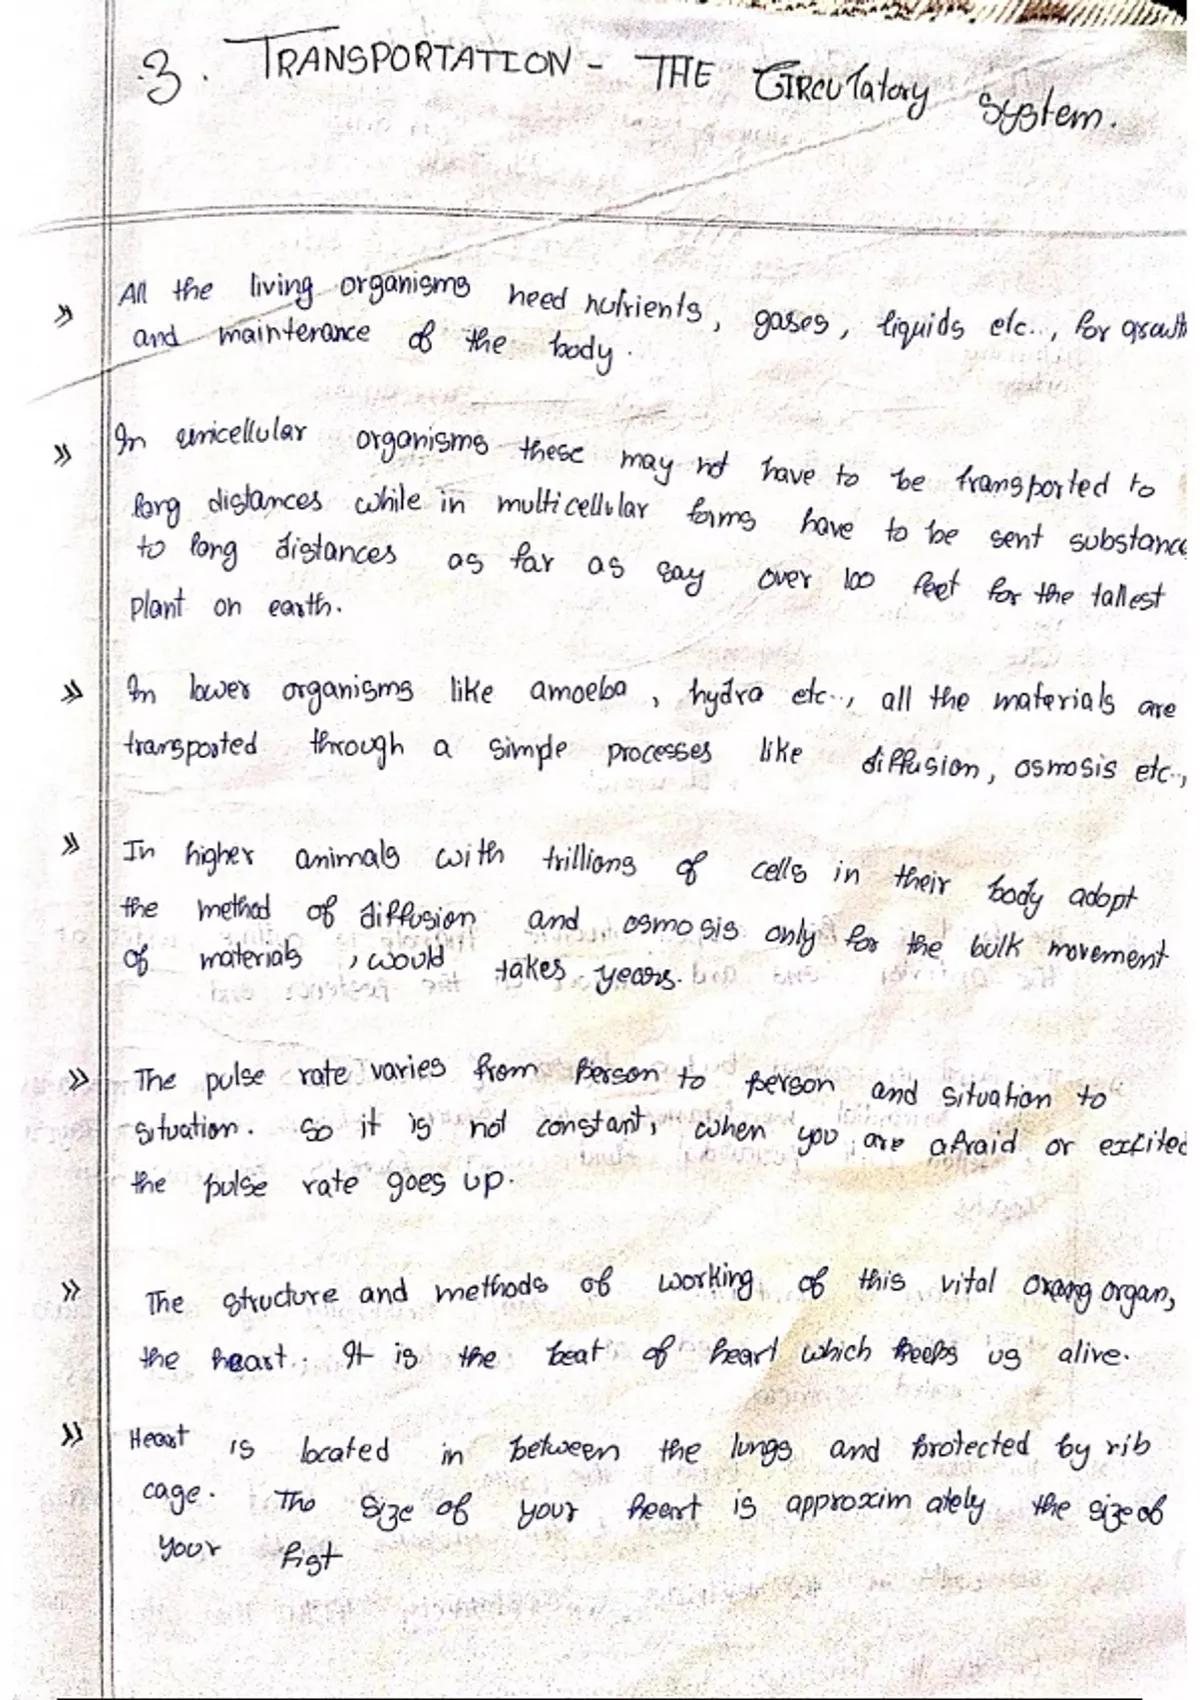 3. TRANSPORTATION - THE CIRCUlatory System.
» All the living organisms need nutrients, gases, liquids etc.., for growth
and maintenance of the body.
» In unicellular organisms these may not have to be transported to
long distances while in multicellular forms have to be sent substance
to long distances as far as say over 100 feet for the tallest
plant on earth.
» In lower organisms like amoeba, hydra etc.., all the materials are
transported through a simple processes like diffusion, osmosis etc..,
» In higher animals with trillions of cells in their body adopt
the method of diffusion and osmosis only for the bulk movement
of materials, would takes years.
» The pulse rate varies from person to person and situation to
situation. So it is not constant, when you are afraid or excited
the pulse rate goes up.
» The structure and methods of working of this vital organ,
the heart. It is the beat of heart which keeps us alive.
» Heart is located in between the lungs and protected by rib
cage. The size of your heart is approxim ately the size of
your fist